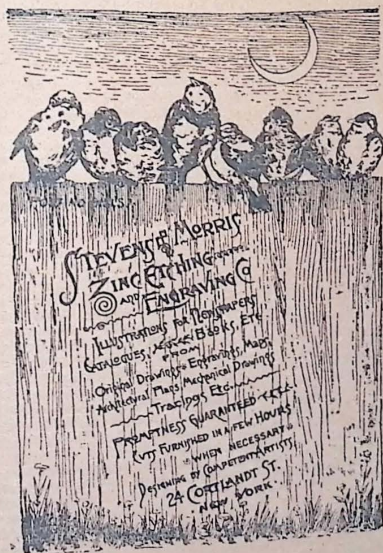 STEVENS & MORRIS
ZINC ETCHING
AND ENGRAVING CO
ILLUSTRATIONS FOR NEWSPAPERS
CATALOGUES, BOOKS, ETC
FROM
Original Drawings, Engravings, Maps,
Architectural Plans, Mechanical Drawings
Tracings Etc.
PROMPTNESS GUARANTEED
CUTS FURNISHED IN A FEW HOURS
WHEN NECESSARY.
DESIGNING BY COMPETENT ARTISTS
24 CORTLANDT ST.
NEW YORK